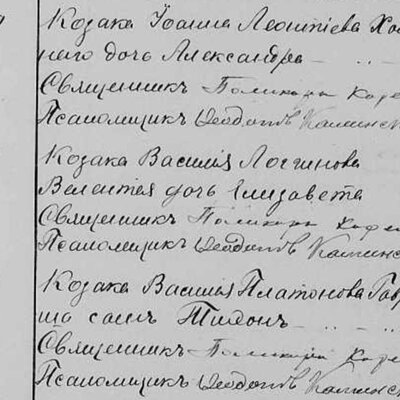 Козака Іоанна Леонтіева Хо
наго дочь Александра
Священникъ Поликарпъ
Псаломщикъ Ѳеодотъ Калинс
Козака Василія Логгинова
дочь Елизавета
Священникъ Поликарпъ
Псаломщикъ Ѳеодотъ Калинс
Козака Василія Платонова Гав
ша сынъ
Священникъ Поликарпъ
Псаломщикъ Ѳеодотъ Калинс